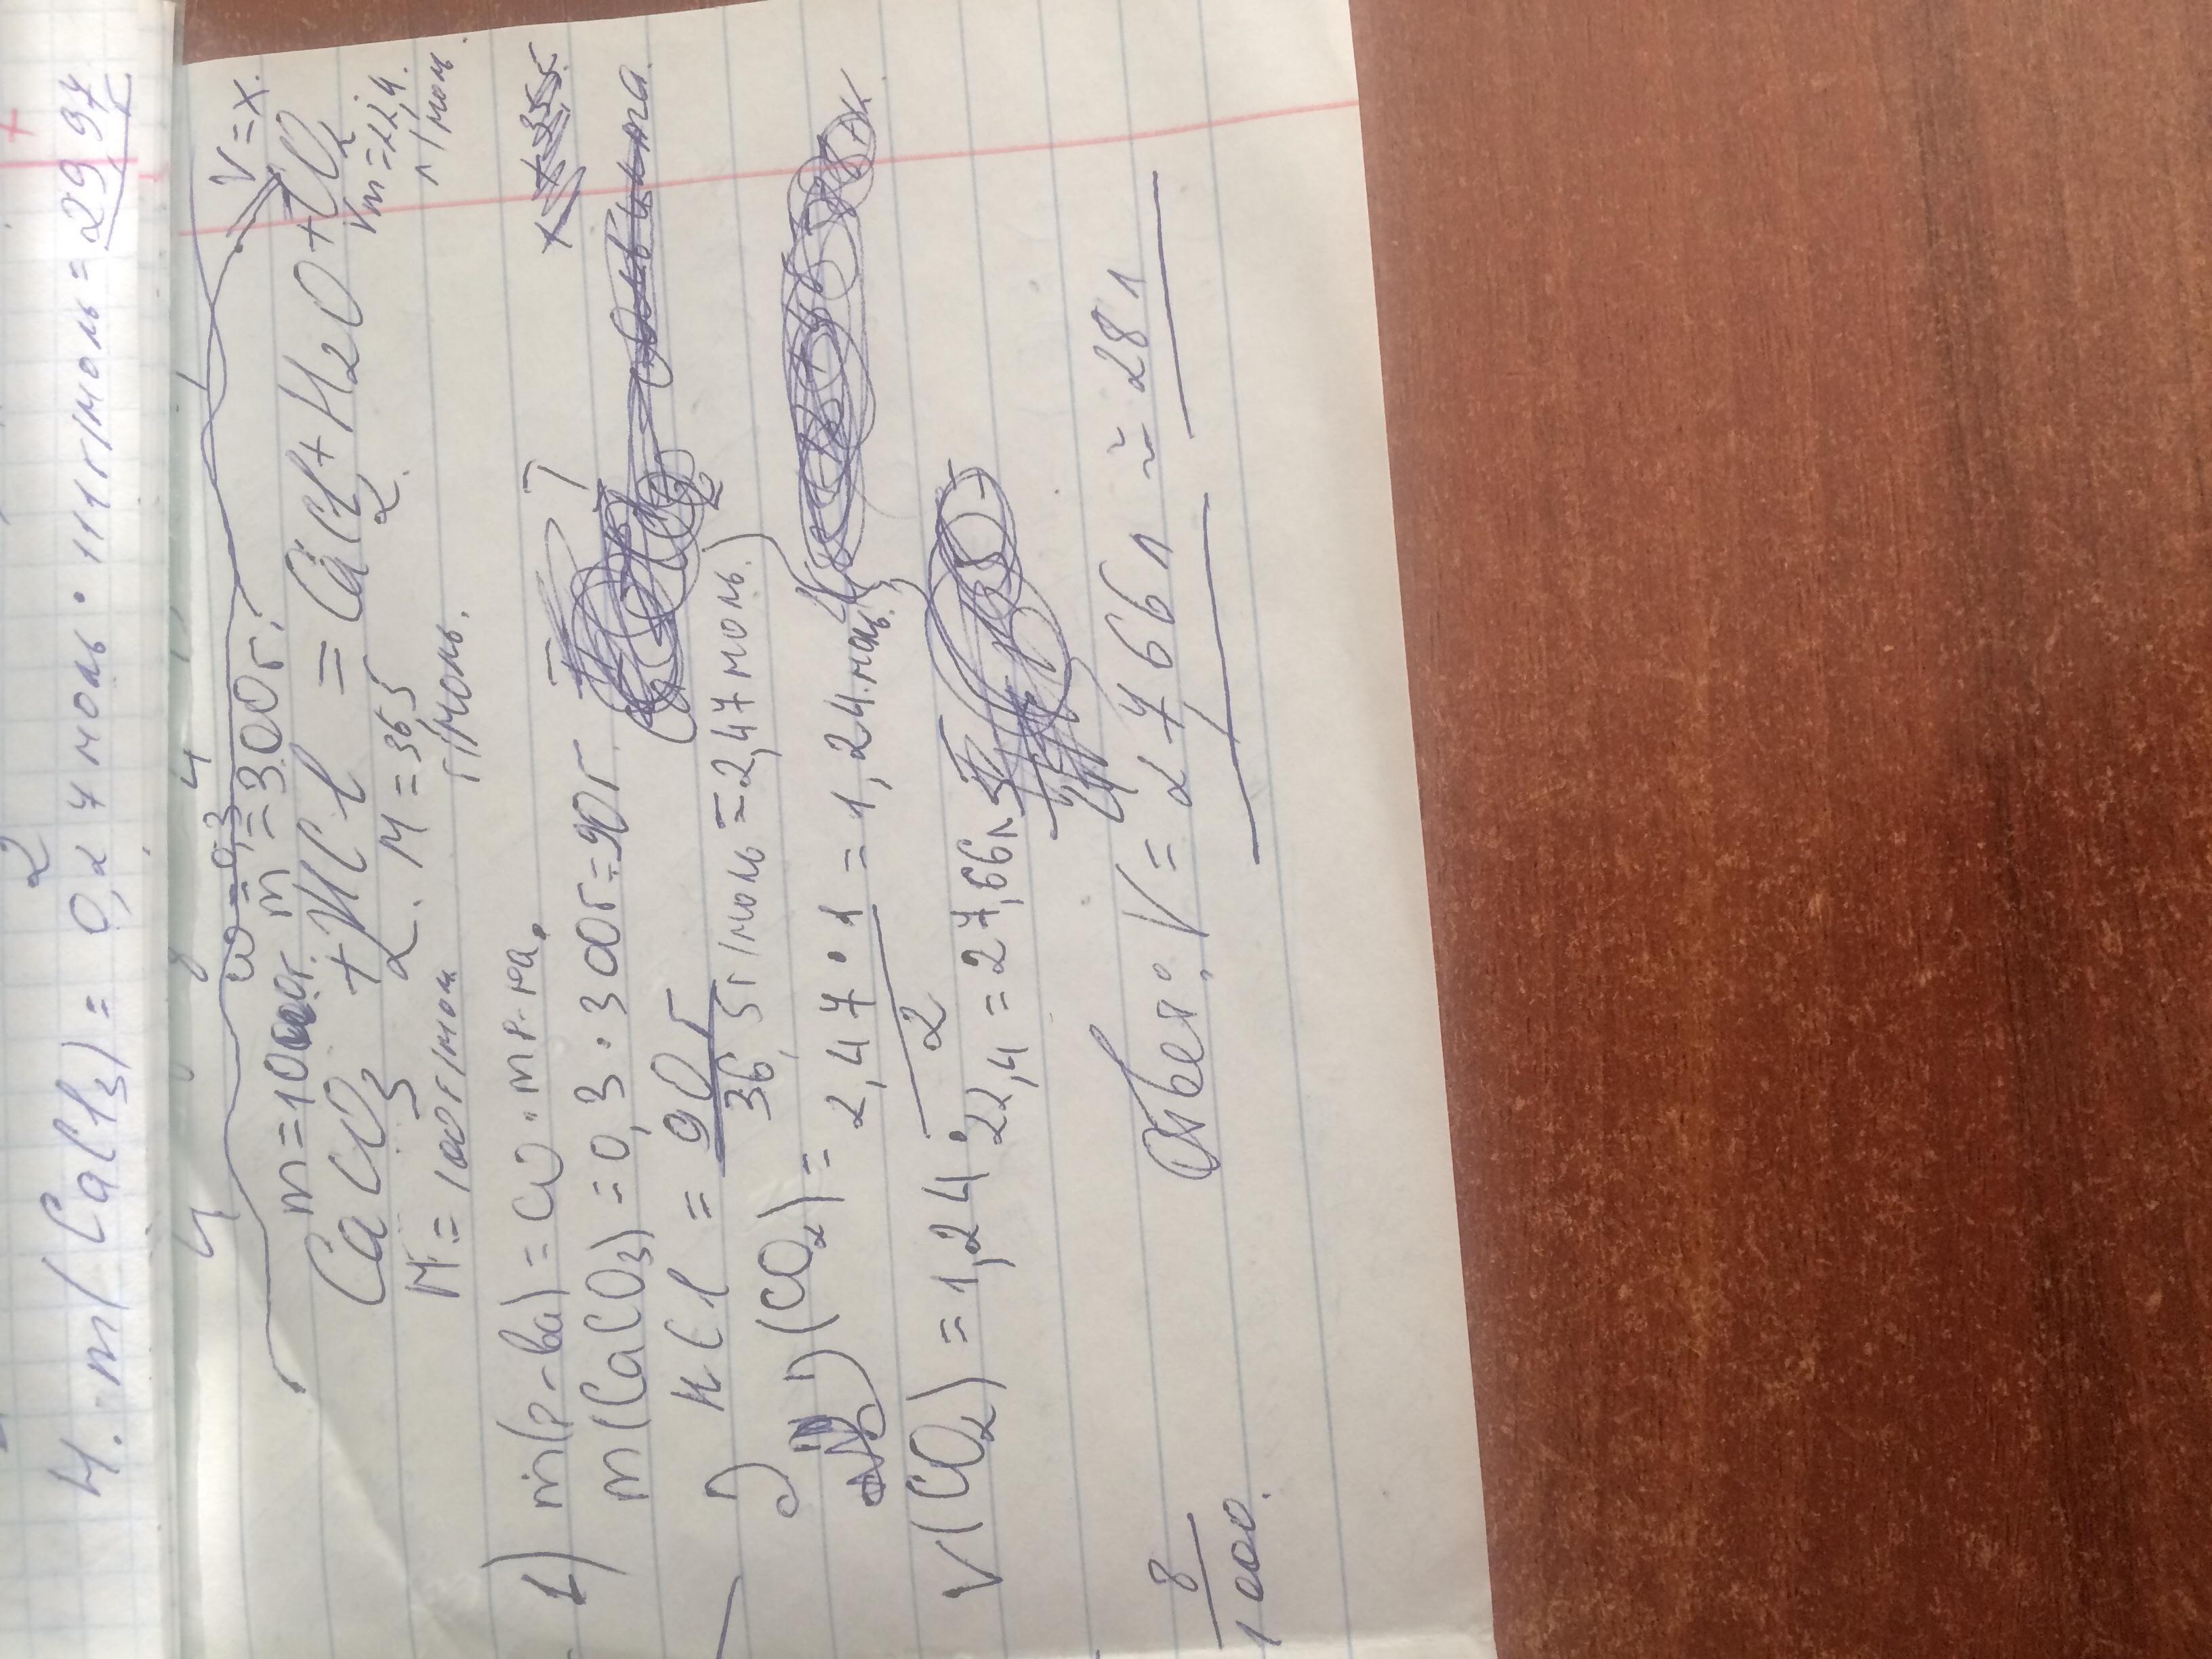 2
4. m(CaCl3) = 0,27 моль · 111 г/моль = 29,97
4 8 4
ω=0,3 V=x.
m=1000г. m=300г.
CaCO3 + HCl = CaCl + H2O + CO2
2. 2. Vm=22,4.
M= 100г/мол M=36,5 г/моль. л/мол.
1) m(р-ва) = ω · m р-ра.
m(CaCO3) = 0,3 · 300г = 90г
HCl = 90г
36,5г/моль = 2,47моль.
2) n)(CO2) = 2,47 · 1 = 1,24.моль
2
V(CO2) = 1,24 · 22,4 = 27,66л
Ответ: V = 27,66л ≈ 28л
8
1000.